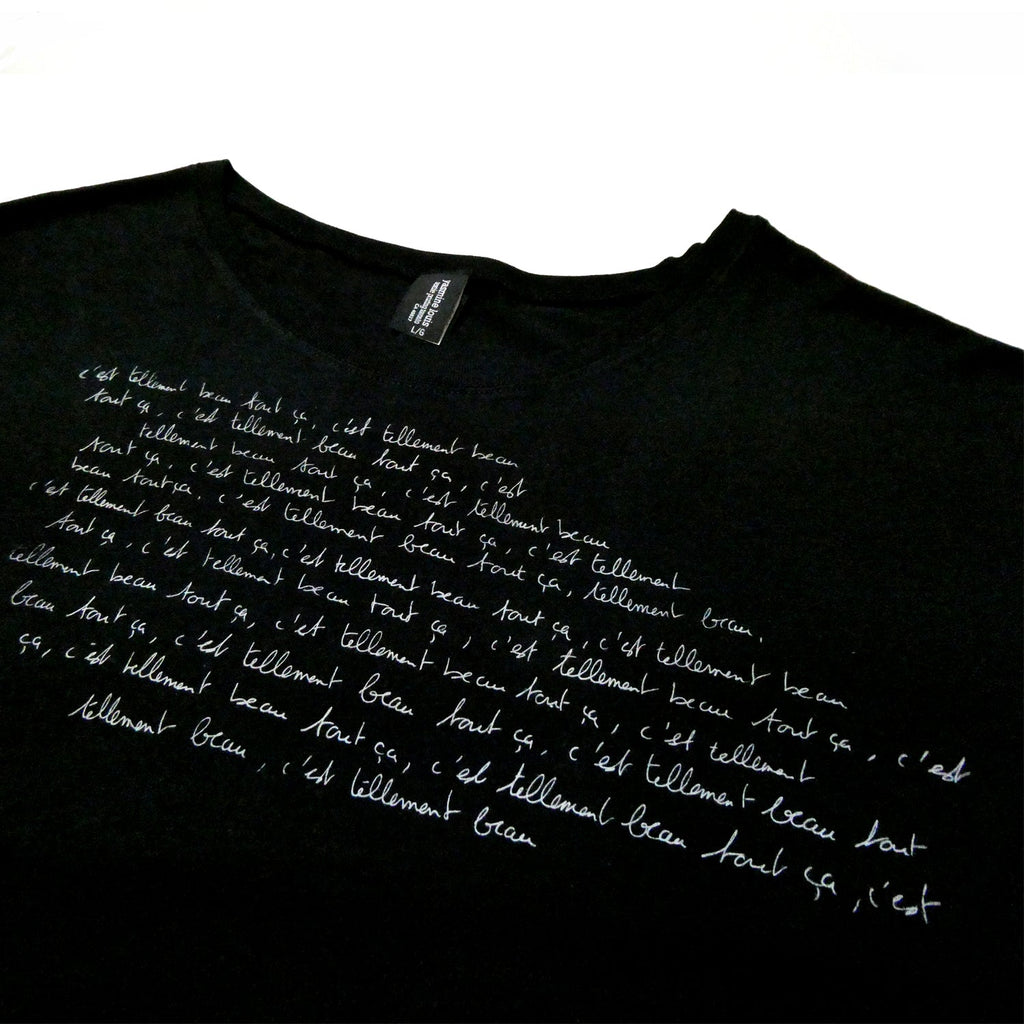 yasmine louis
L/G
c'est tellement beau tout ça, c'est tellement beau
tout ça, c'est tellement beau tout ça, c'est
tellement beau tout ça, c'est tellement beau
tout ça, c'est tellement beau tout ça, c'est tellement
beau tout ça, c'est tellement beau tout ça, tellement beau.
c'est tellement beau tout ça, c'est tellement beau tout ça, c'est tellement beau
tout ça, c'est tellement beau tout ça, c'est tellement beau tout ça, c'est
tellement beau tout ça, c'est tellement beau tout ça, c'est tellement
beau tout ça, c'est tellement beau tout ça, c'est tellement beau tout
ça, c'est tellement beau tout ça, c'est tellement beau tout ça, c'est
tellement beau, c'est tellement beau